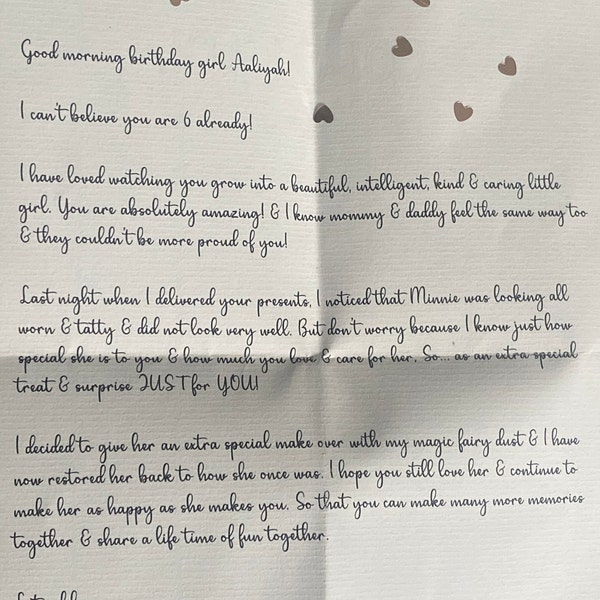 Good morning birthday girl Aaliyah!
I can't believe you are 6 already!
I have loved watching you grow into a beautiful, intelligent, kind & caring little
girl. You are absolutely amazing! & I know mommy & daddy feel the same way too
& they couldn't be more proud of you!
Last night when I delivered your presents, I noticed that Minnie was looking all
worn & tatty & did not look very well. But don't worry because I know just how
special she is to you & how much you love & care for her. So... as an extra special
treat & surprise JUST for YOU!
I decided to give her an extra special make over with my magic fairy dust & I have
now restored her back to how she once was. I hope you still love her & continue to
make her as happy as she makes you. So that you can make many more memories
together & share a life time of fun together.